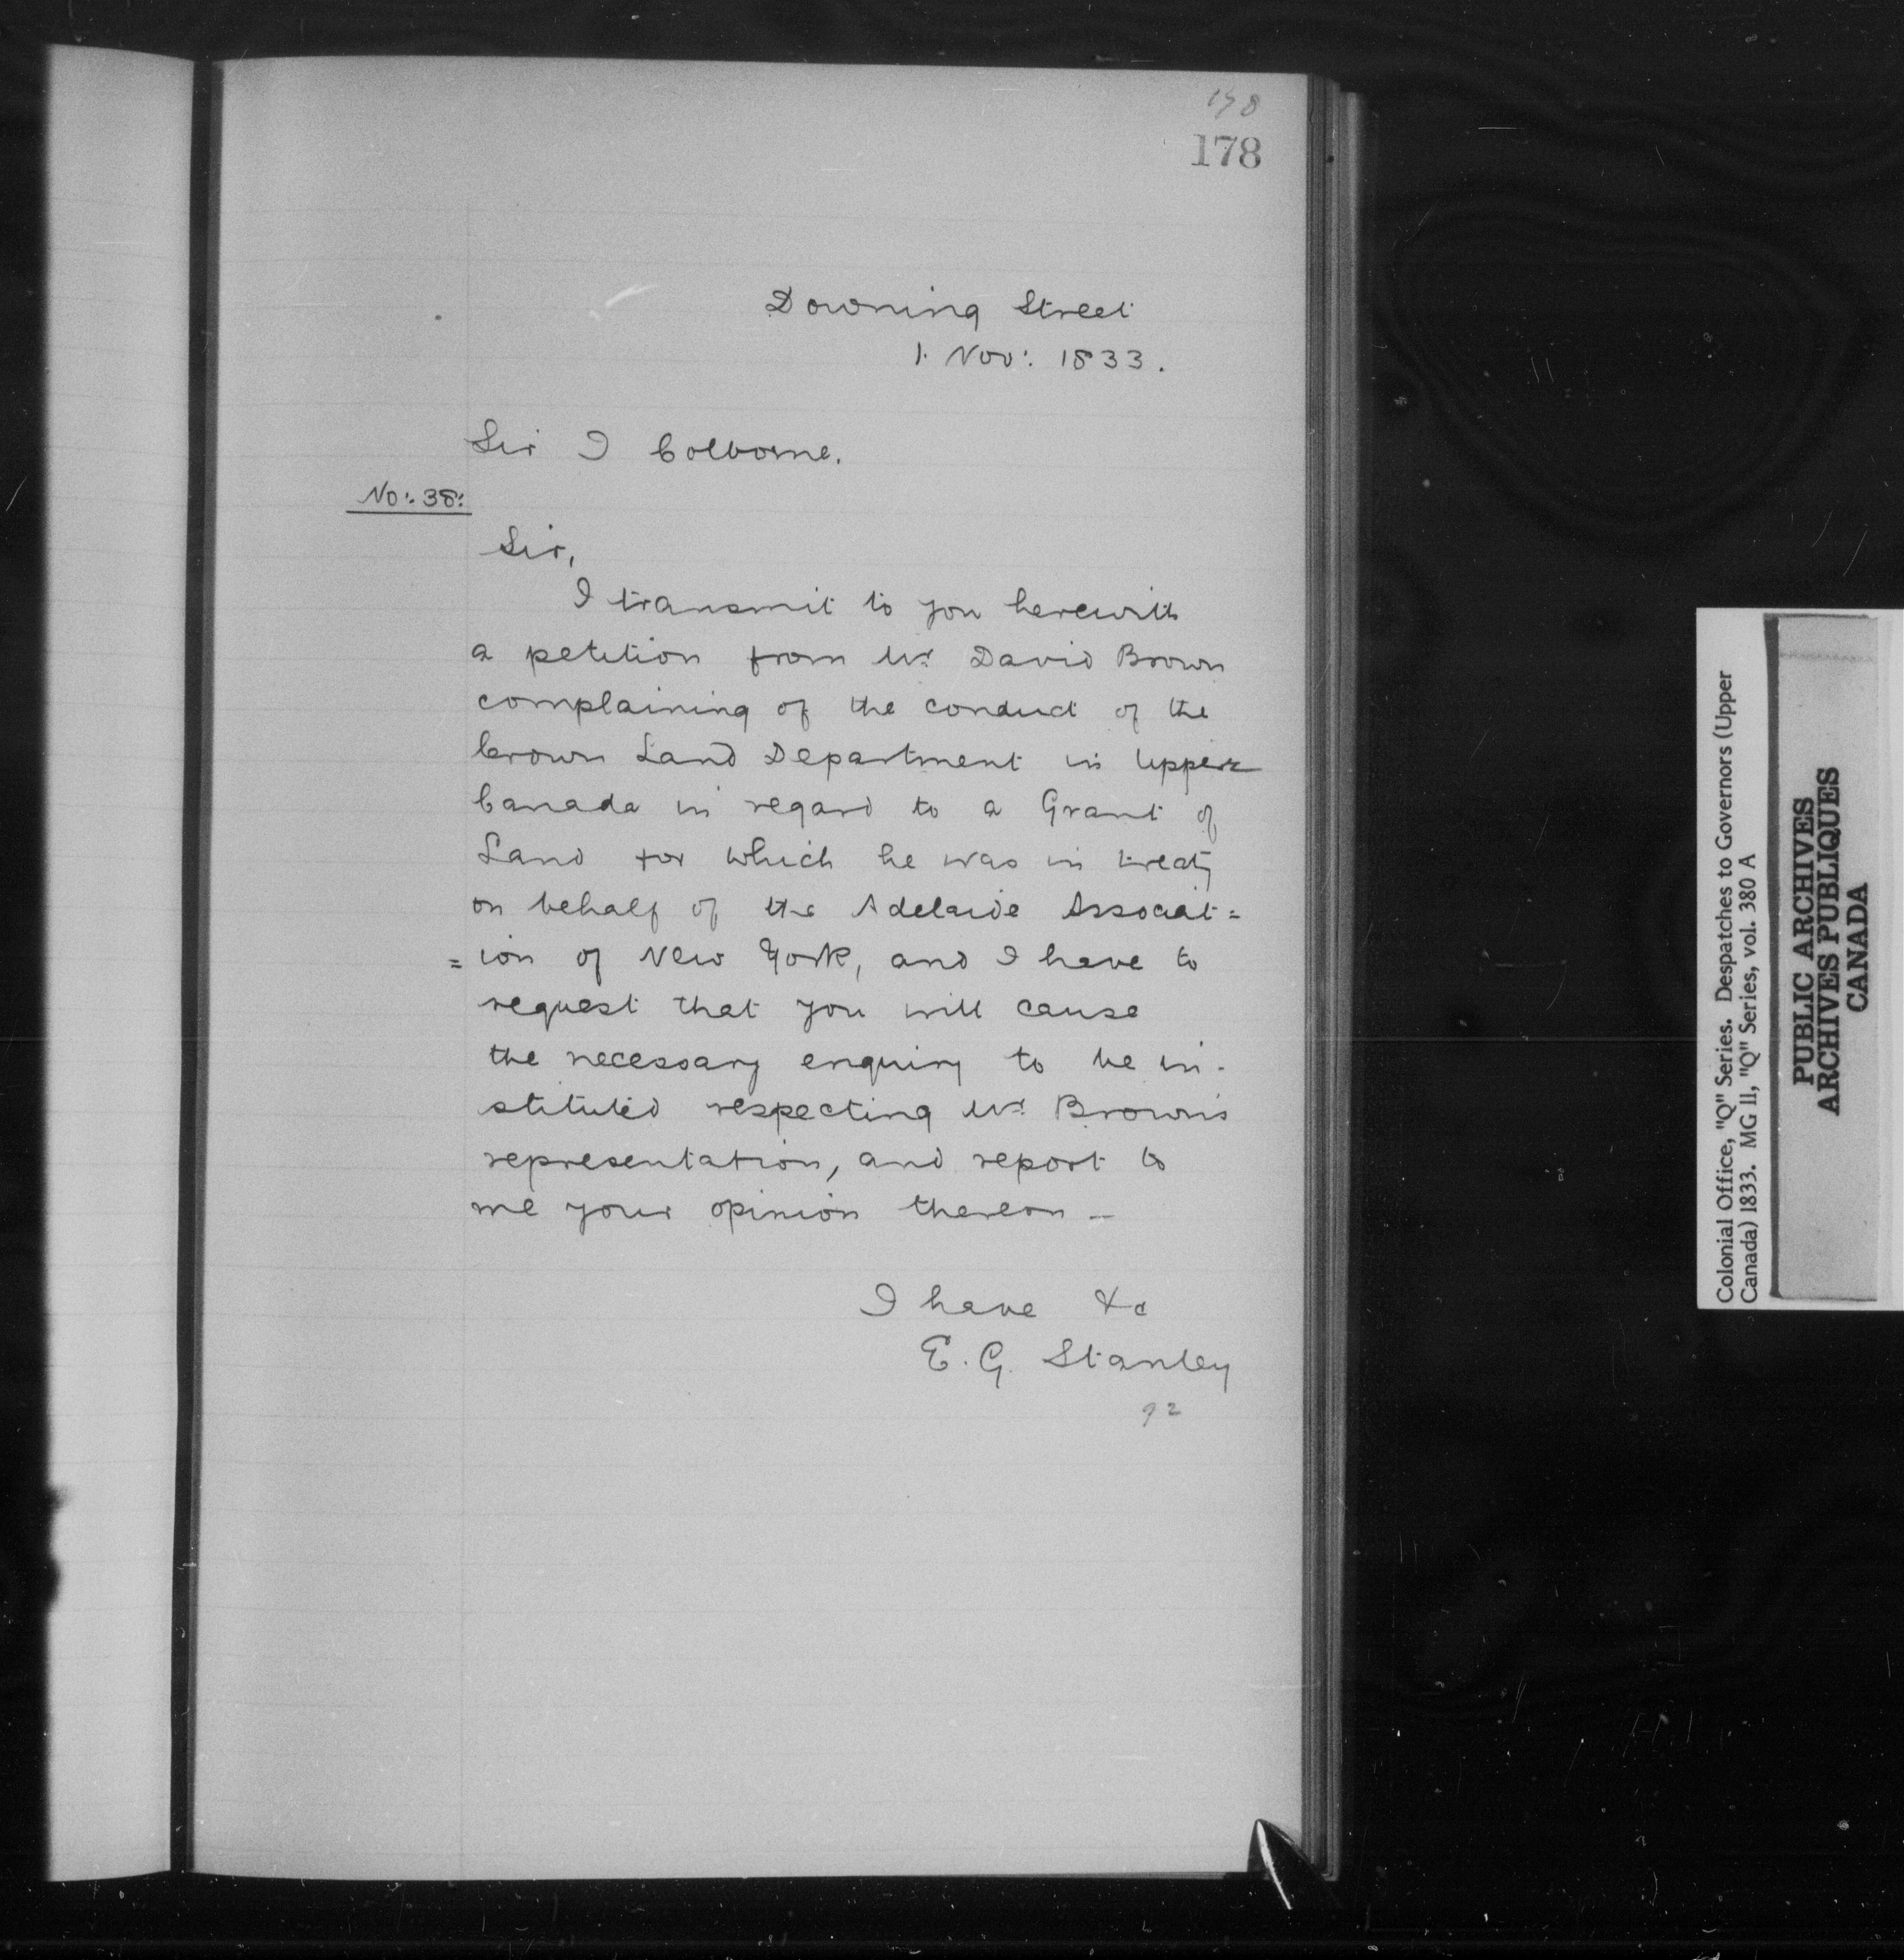 178
178
Downing Street
1. Nov: 1833.
Sir J Colborne.
No: 38:
Sir,
I transmit to you herewith
a petition from Mr. David Brown
complaining of the conduct of the
Crown Land Department in Upper
Canada in regard to a Grant of
Land for which he was in treaty
on behalf of the Adelaide Associat=
=ion of New York, and I have to
request that you will cause
the necessary enquiry to be in-
stituted respecting Mr. Brown's
representation, and report to
me your opinion thereon –
I have &c
E. G. Stanley
92
Colonial Office, "Q" Series. Despatches to Governors (Upper
Canada) 1833. MG 11, "Q" Series, vol. 380 A
PUBLIC ARCHIVES
ARCHIVES PUBLIQUES
CANADA